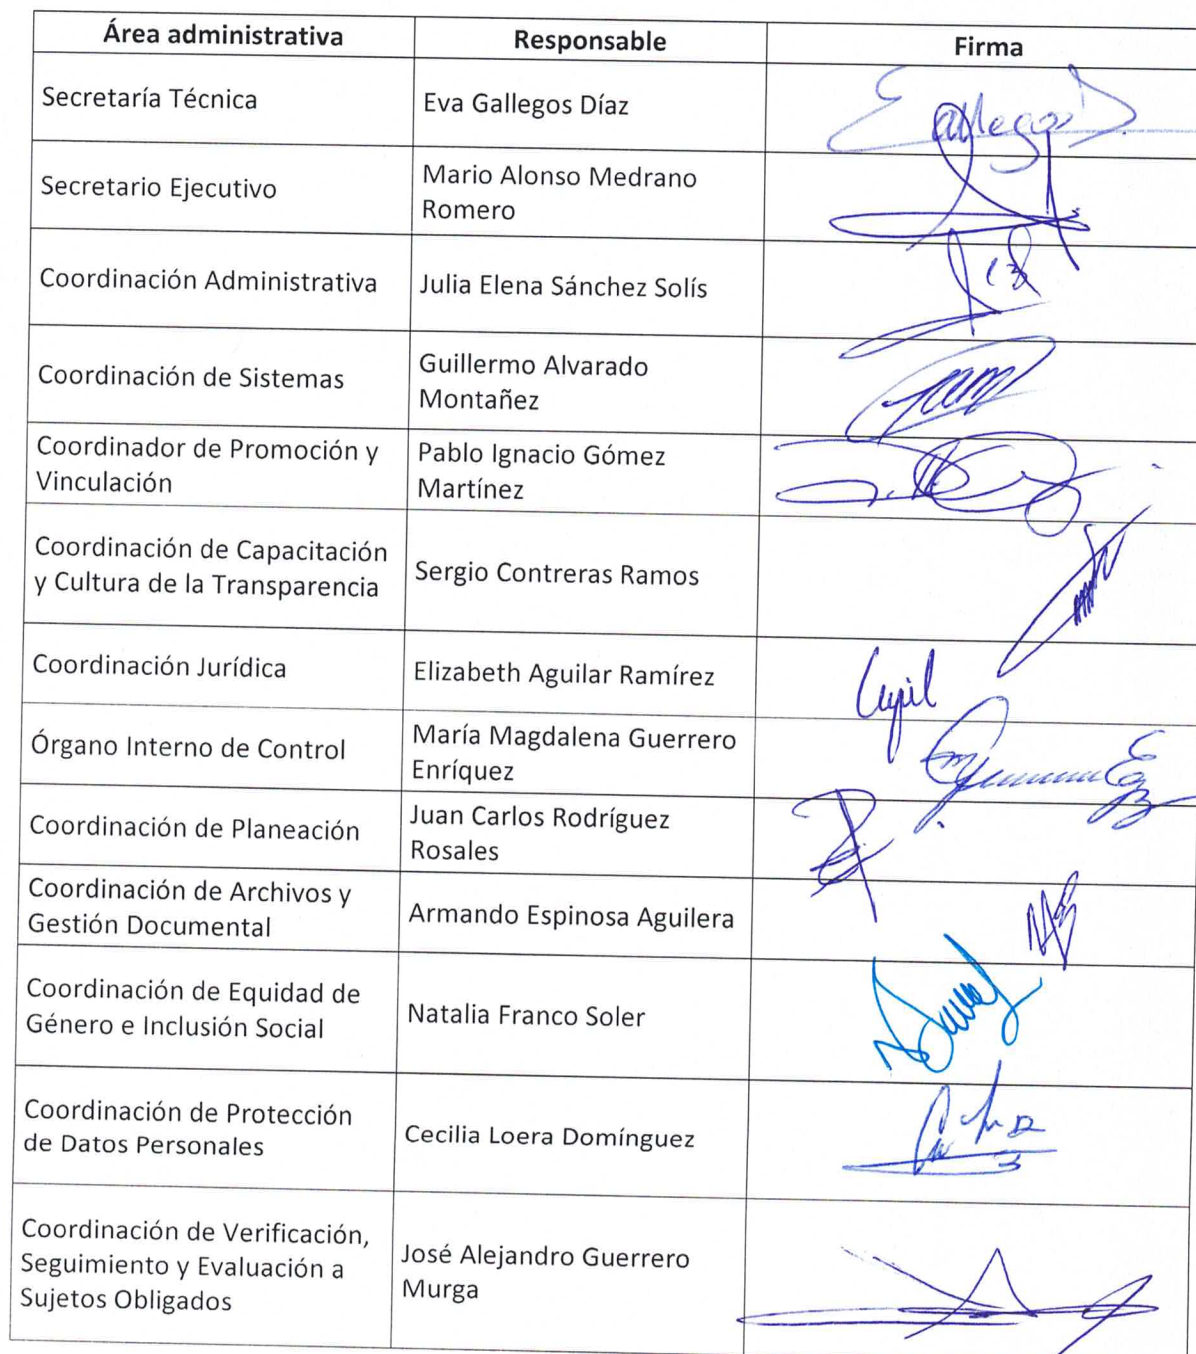 Área administrativa
Responsable
Firma
Secretaría Técnica
Eva Gallegos Díaz
Egallegos D.
Secretario Ejecutivo
Mario Alonso Medrano
Romero
Coordinación Administrativa
Julia Elena Sánchez Solís
Coordinación de Sistemas
Guillermo Alvarado
Montañez
Coordinador de Promoción y
Vinculación
Pablo Ignacio Gómez
Martínez
Coordinación de Capacitación
y Cultura de la Transparencia
Sergio Contreras Ramos
Coordinación Jurídica
Elizabeth Aguilar Ramírez
Órgano Interno de Control
María Magdalena Guerrero
Enríquez
Coordinación de Planeación
Juan Carlos Rodríguez
Rosales
Coordinación de Archivos y
Gestión Documental
Armando Espinosa Aguilera
Coordinación de Equidad de
Género e Inclusión Social
Natalia Franco Soler
Coordinación de Protección
de Datos Personales
Cecilia Loera Domínguez
Coordinación de Verificación,
Seguimiento y Evaluación a
Sujetos Obligados
José Alejandro Guerrero
Murga